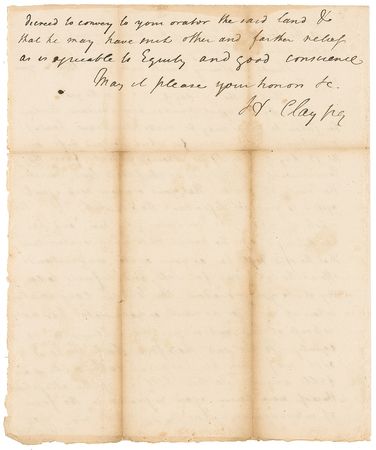 decreed to convey to your orator the said land &
that he may have such other and farther relief
as is agreeable to Equity and good conscience
May it please your honors &c.
H. Clay pq